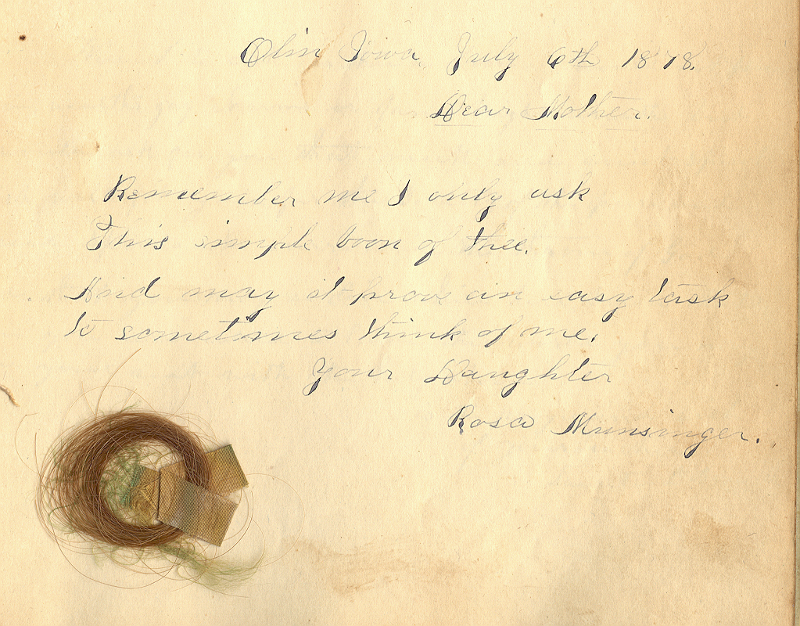 Olin Iowa, July 6th 1878.
Dear Mother.
Remember me I only ask
This simple boon of thee.
And may it prove an easy task
to sometimes think of me.
Your Daughter
Rosa Munsinger.